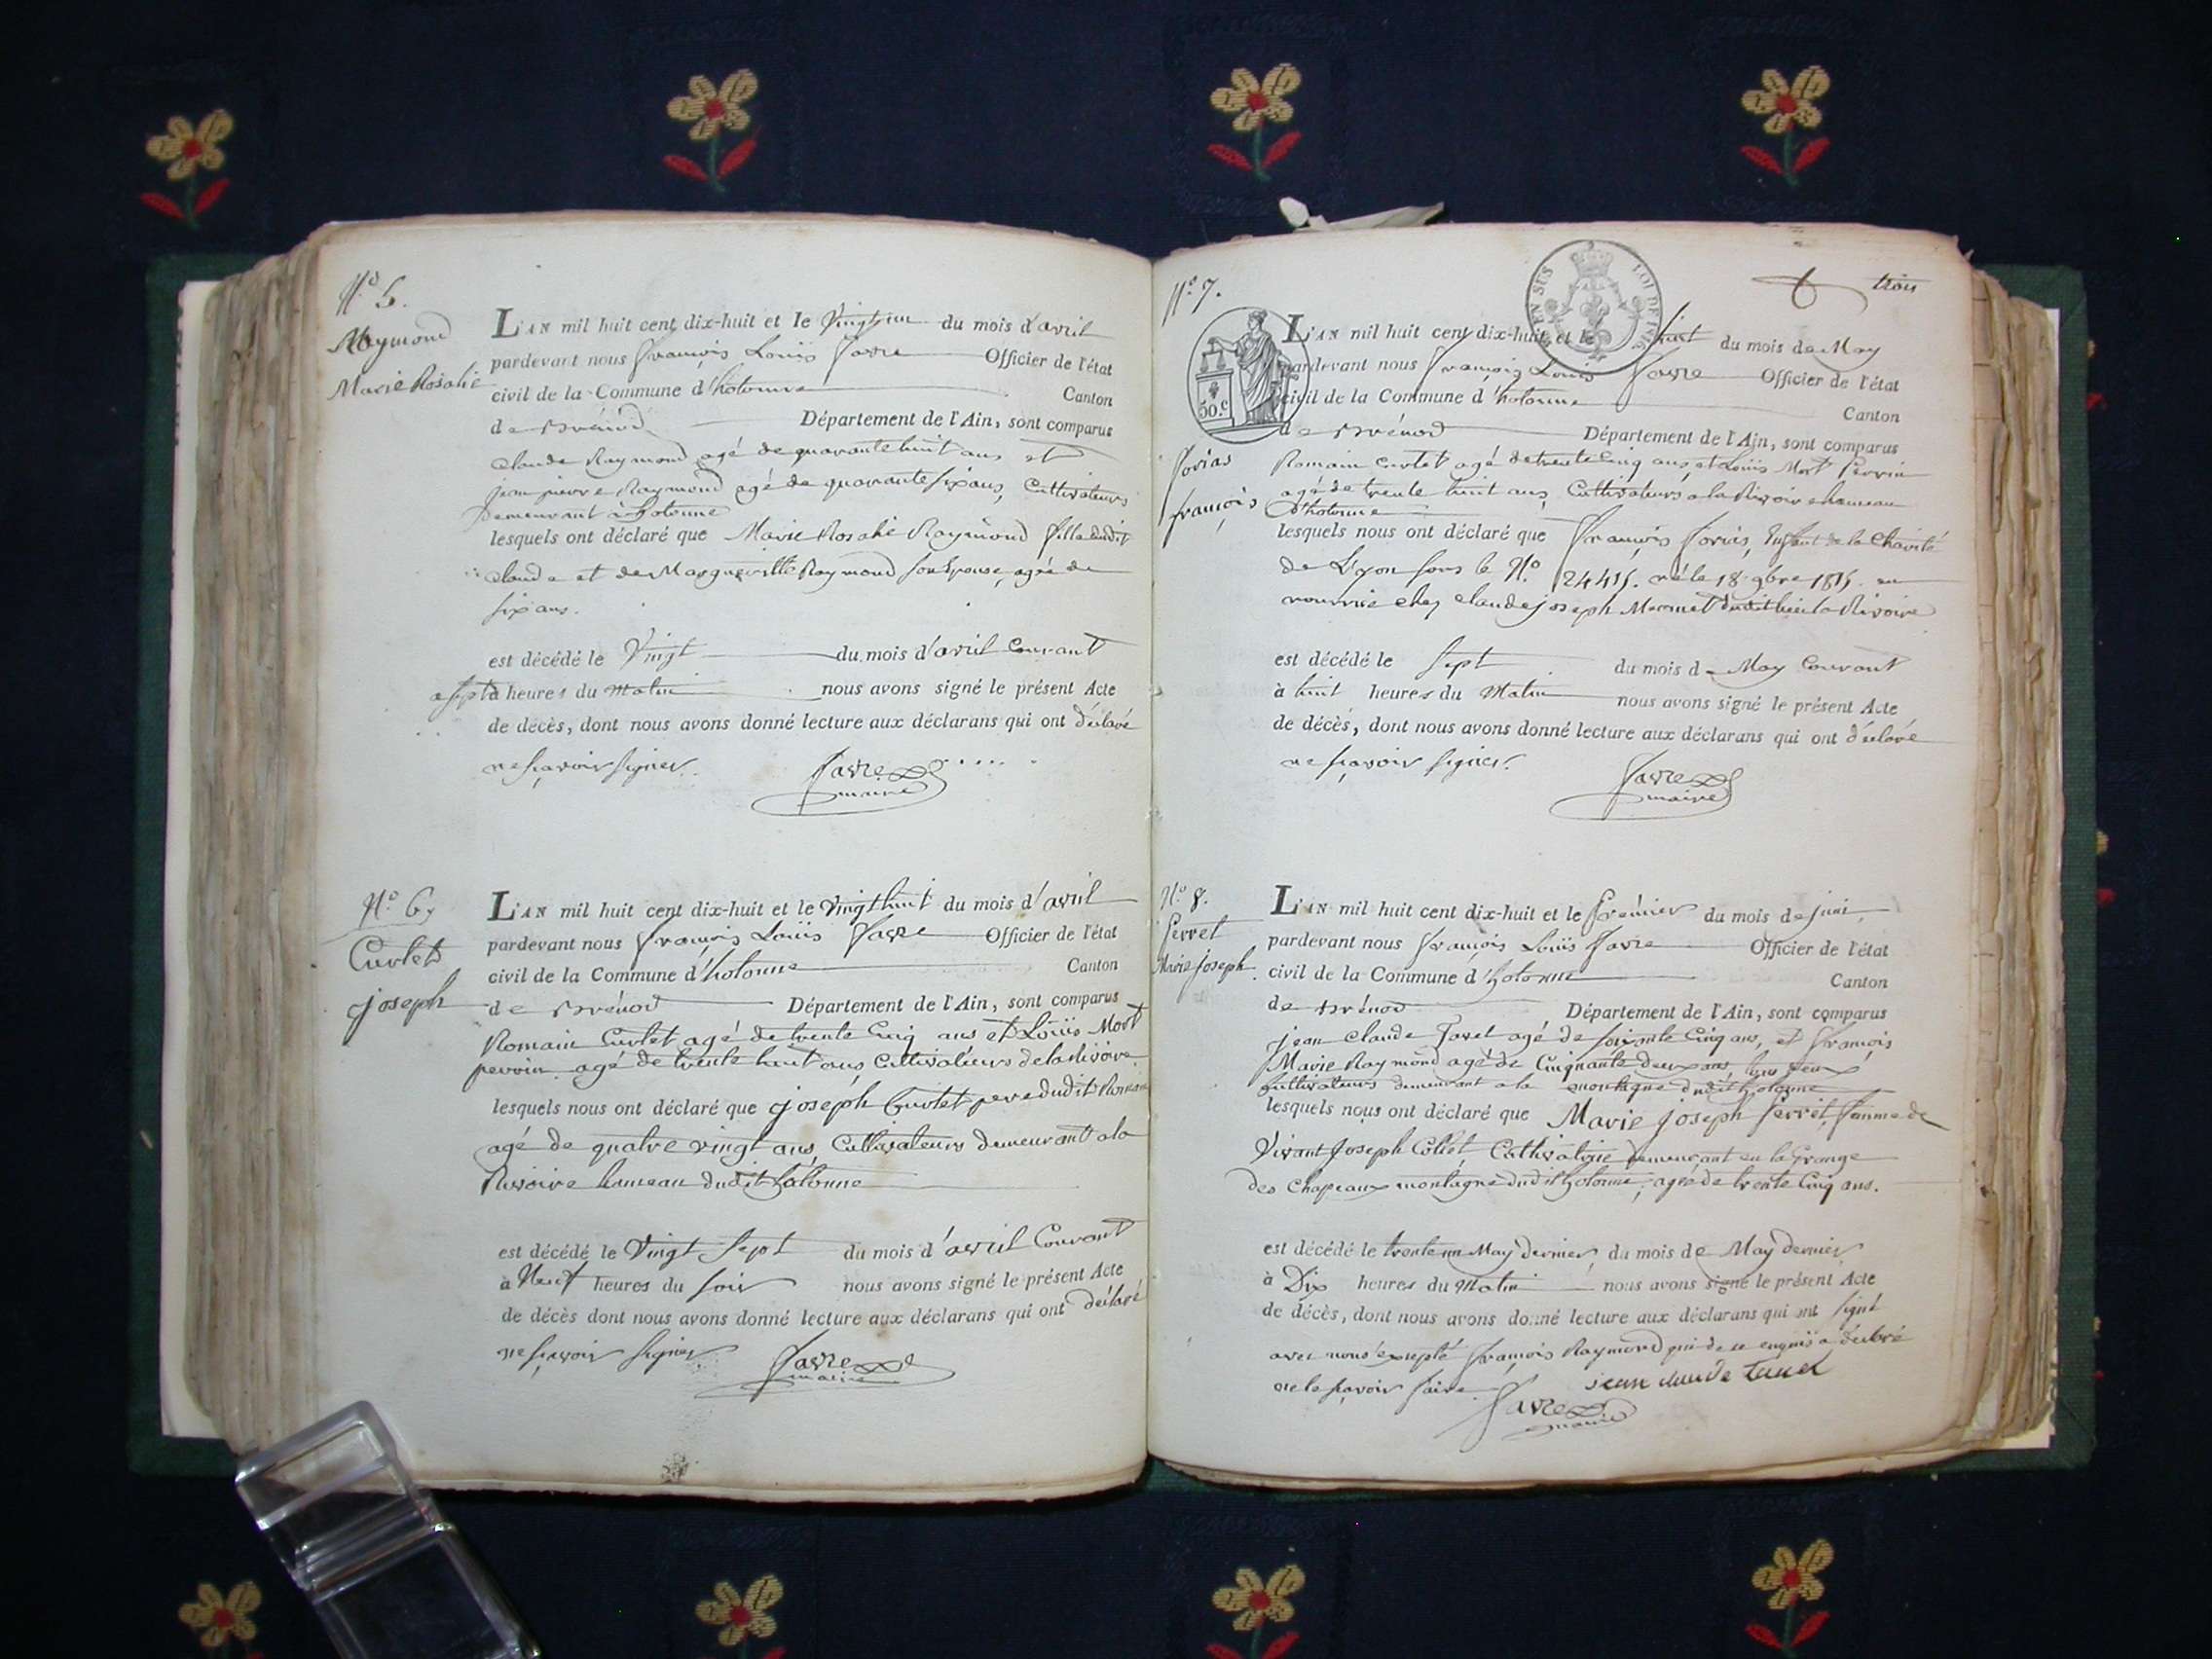 N.º 5.
Raymond
Marie Rosalie
L'AN mil huit cent dix-huit et le Vingt un du mois d'avril
pardevant nous françois Louis favre Officier de l'état
civil de la Commune d'hotonne Canton
de Brénod Département de l'Ain, sont comparus
Claude Raymond agé de quarante huit ans et
jean pierre Raymond agé de quarante six ans, Cultivateurs
Demeurant à hotonne
lesquels ont déclaré que Marie Rosalie Raymond fille dudit
Claude et de Margueritte Raymond son Epouse, agée de
six ans.
est décédé le Vingt du mois d'avril Courant
a sept à heures du Matin nous avons signé le présent Acte
de décès, dont nous avons donné lecture aux déclarans qui ont déclaré
ne sçavoir signer.
favre
maire
N.º 6
Curtet
joseph
L'AN mil huit cent dix-huit et le Vingt huit du mois d'avril
pardevant nous françois Louis favre Officier de l'état
civil de la Commune d'hotonne Canton
de Brénod Département de l'Ain, sont comparus
Romain Curtet agé de trente Cinq ans et Louis Mort
perrin agé de trente huit ans, Cultivateurs de la Rivoire
lesquels nous ont déclaré que joseph Curtet pere dudit Romain
agé de quatre vingt ans, Cultivateurs demeurant a la
Rivoire hameau dudit hotonne
est décédé le Vingt sept du mois d'avril Courant
à Neuf heures du soir nous avons signé le présent Acte
de décès dont nous avons donné lecture aux déclarans qui ont déclaré
ne sçavoir signer
favre
maire
trois
EN SUS LOI DE 1816
50.c
N.º 7.
françois
L'AN mil huit cent dix-huit et le huit du mois de May
pardevant nous françois Louis favre Officier de l'état
civil de la Commune d'hotonne Canton
de Brénod Département de l'Ain, sont comparus
Romain Curtet agé de trente Cinq ans, et Louis Mort Perrin
agé de trente huit ans, Cultivateurs a la Rivoire hameau
d'hotonne
lesquels nous ont déclaré que françois Enfant de la Charité
de Lyon sous le N.º 24415. né le 18 9bre 1815. en
nourrice chez Claude joseph Mermet dudit lieu la Rivoire
est décédé le sept du mois de May Courant
à huit heures du Matin nous avons signé le présent Acte
de décès, dont nous avons donné lecture aux déclarans qui ont déclaré
ne sçavoir signer.
favre
maire
N.º 8.
Perret
Marie joseph
L'AN mil huit cent dix-huit et le Prémier du mois de juin
pardevant nous françois Louis favre Officier de l'état
civil de la Commune d'hotonne Canton
de Brénod Département de l'Ain, sont comparus
jean Claude agé de soixante Cinq ans, et françois
Marie Raymond agé de Cinquante deux ans, tous deux
Cultivateurs demeurant a la montagne dudit hotonne
lesquels nous ont déclaré que Marie joseph Perret, femme de
Vivant joseph Collet, Cultivatrice demeurant en la Grange
des Chapeaux montagne dudit hotonne, agée de trente Cinq ans.
est décédé le trente un May dernier, du mois de May dernier
à Dix heures du Matin nous avons signé le présent Acte
de décès, dont nous avons donné lecture aux déclarans qui ont signé
avec nous excepté françois Raymond qui de ce enquis a déclaré
ne le sçavoir faire.
jean claude
favre
maire